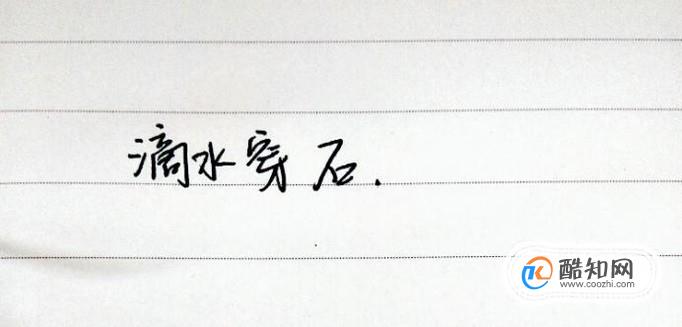 滴水穿石.
酷知网
www.coozhi.com